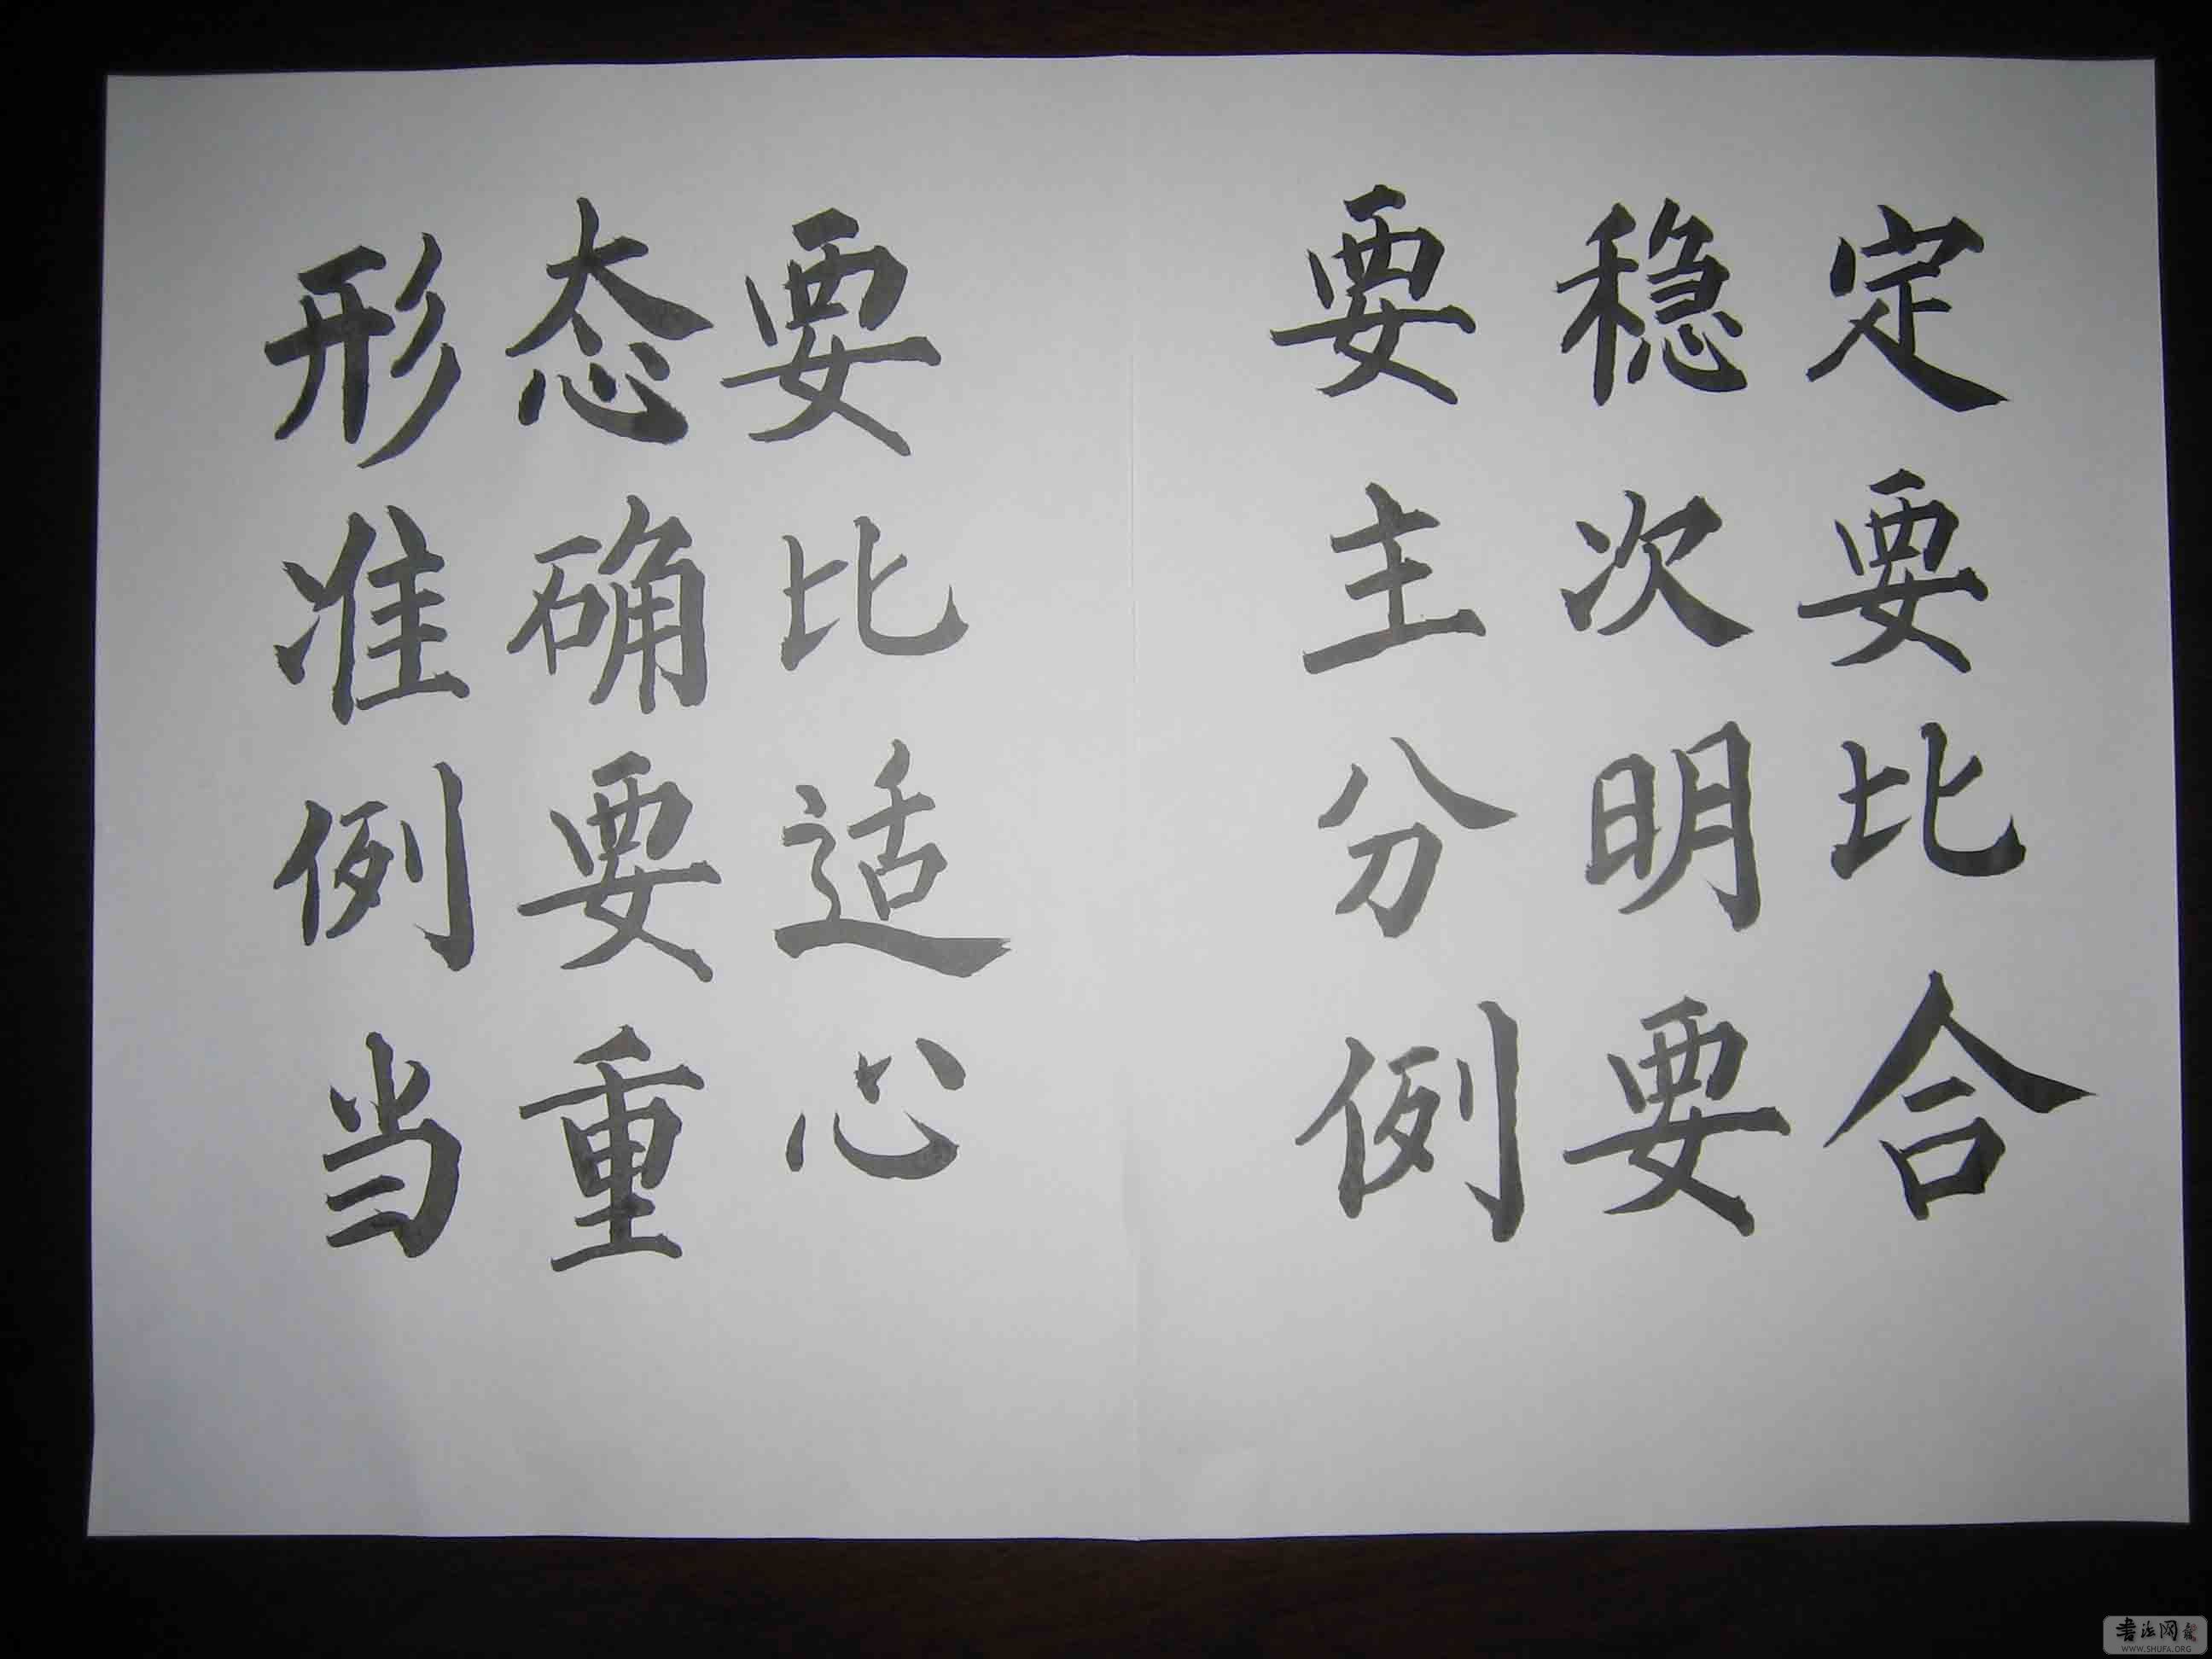 形态要
准确比
例要适
当重心
要稳定
主次要
分明比
例要合
書法网
WWW.SHUFA.ORG